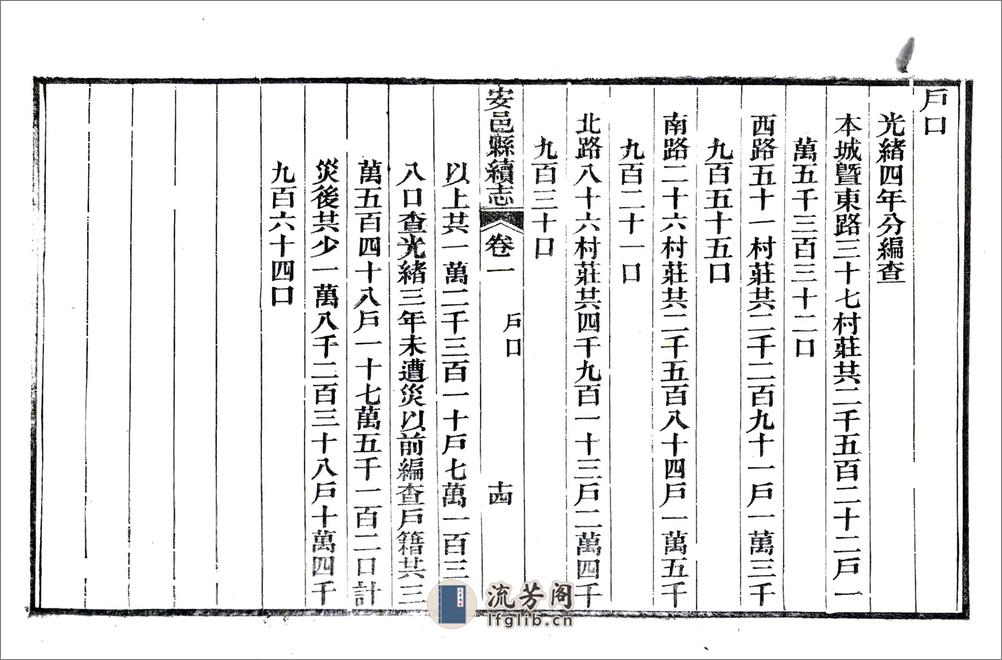 戶口
光緒四年分編查
本城曁東路三十七村莊共二千五百二十二戶一
萬五千三百三十二口
西路五十一村莊共二千二百九十一戶一萬三千
九百五十五口
南路二十六村莊共二千五百八十四戶一萬五千
九百二十一口
北路八十六村莊共四千九百一十三戶二萬四千
九百三十口
安邑縣續志
卷一
戶口
十四
以上共一萬二千三百一十戶七萬一百三
八口查光緒三年未遭災以前編查戶籍共三
萬五百四十八戶一十七萬五千一百二口計
災後共少一萬八千二百三十八戶十萬四千
九百六十四口
流芳阁
lfglib.cn